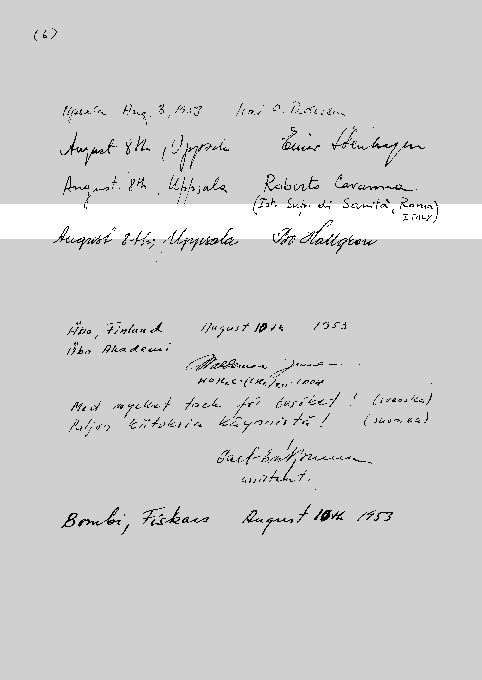 (6)
Uppsala Aug. 3, 1953 Kai O. Pedersen
August 8th, Uppsala Einar Stenhagen
August 8th, Uppsala Roberto Cavanna
(Ist. Sup. di Sanità, Roma)
ITALY
August 8-th; Uppsala Bo Hallgren
Åbo, Finland August 10th 1953
Åbo Akademi
Med mycket tack för besöket! (svenska)
Paljon kiitoksia käynnistä! (suomea)
assistent.
Bombi, Fiskars August 10th 1953